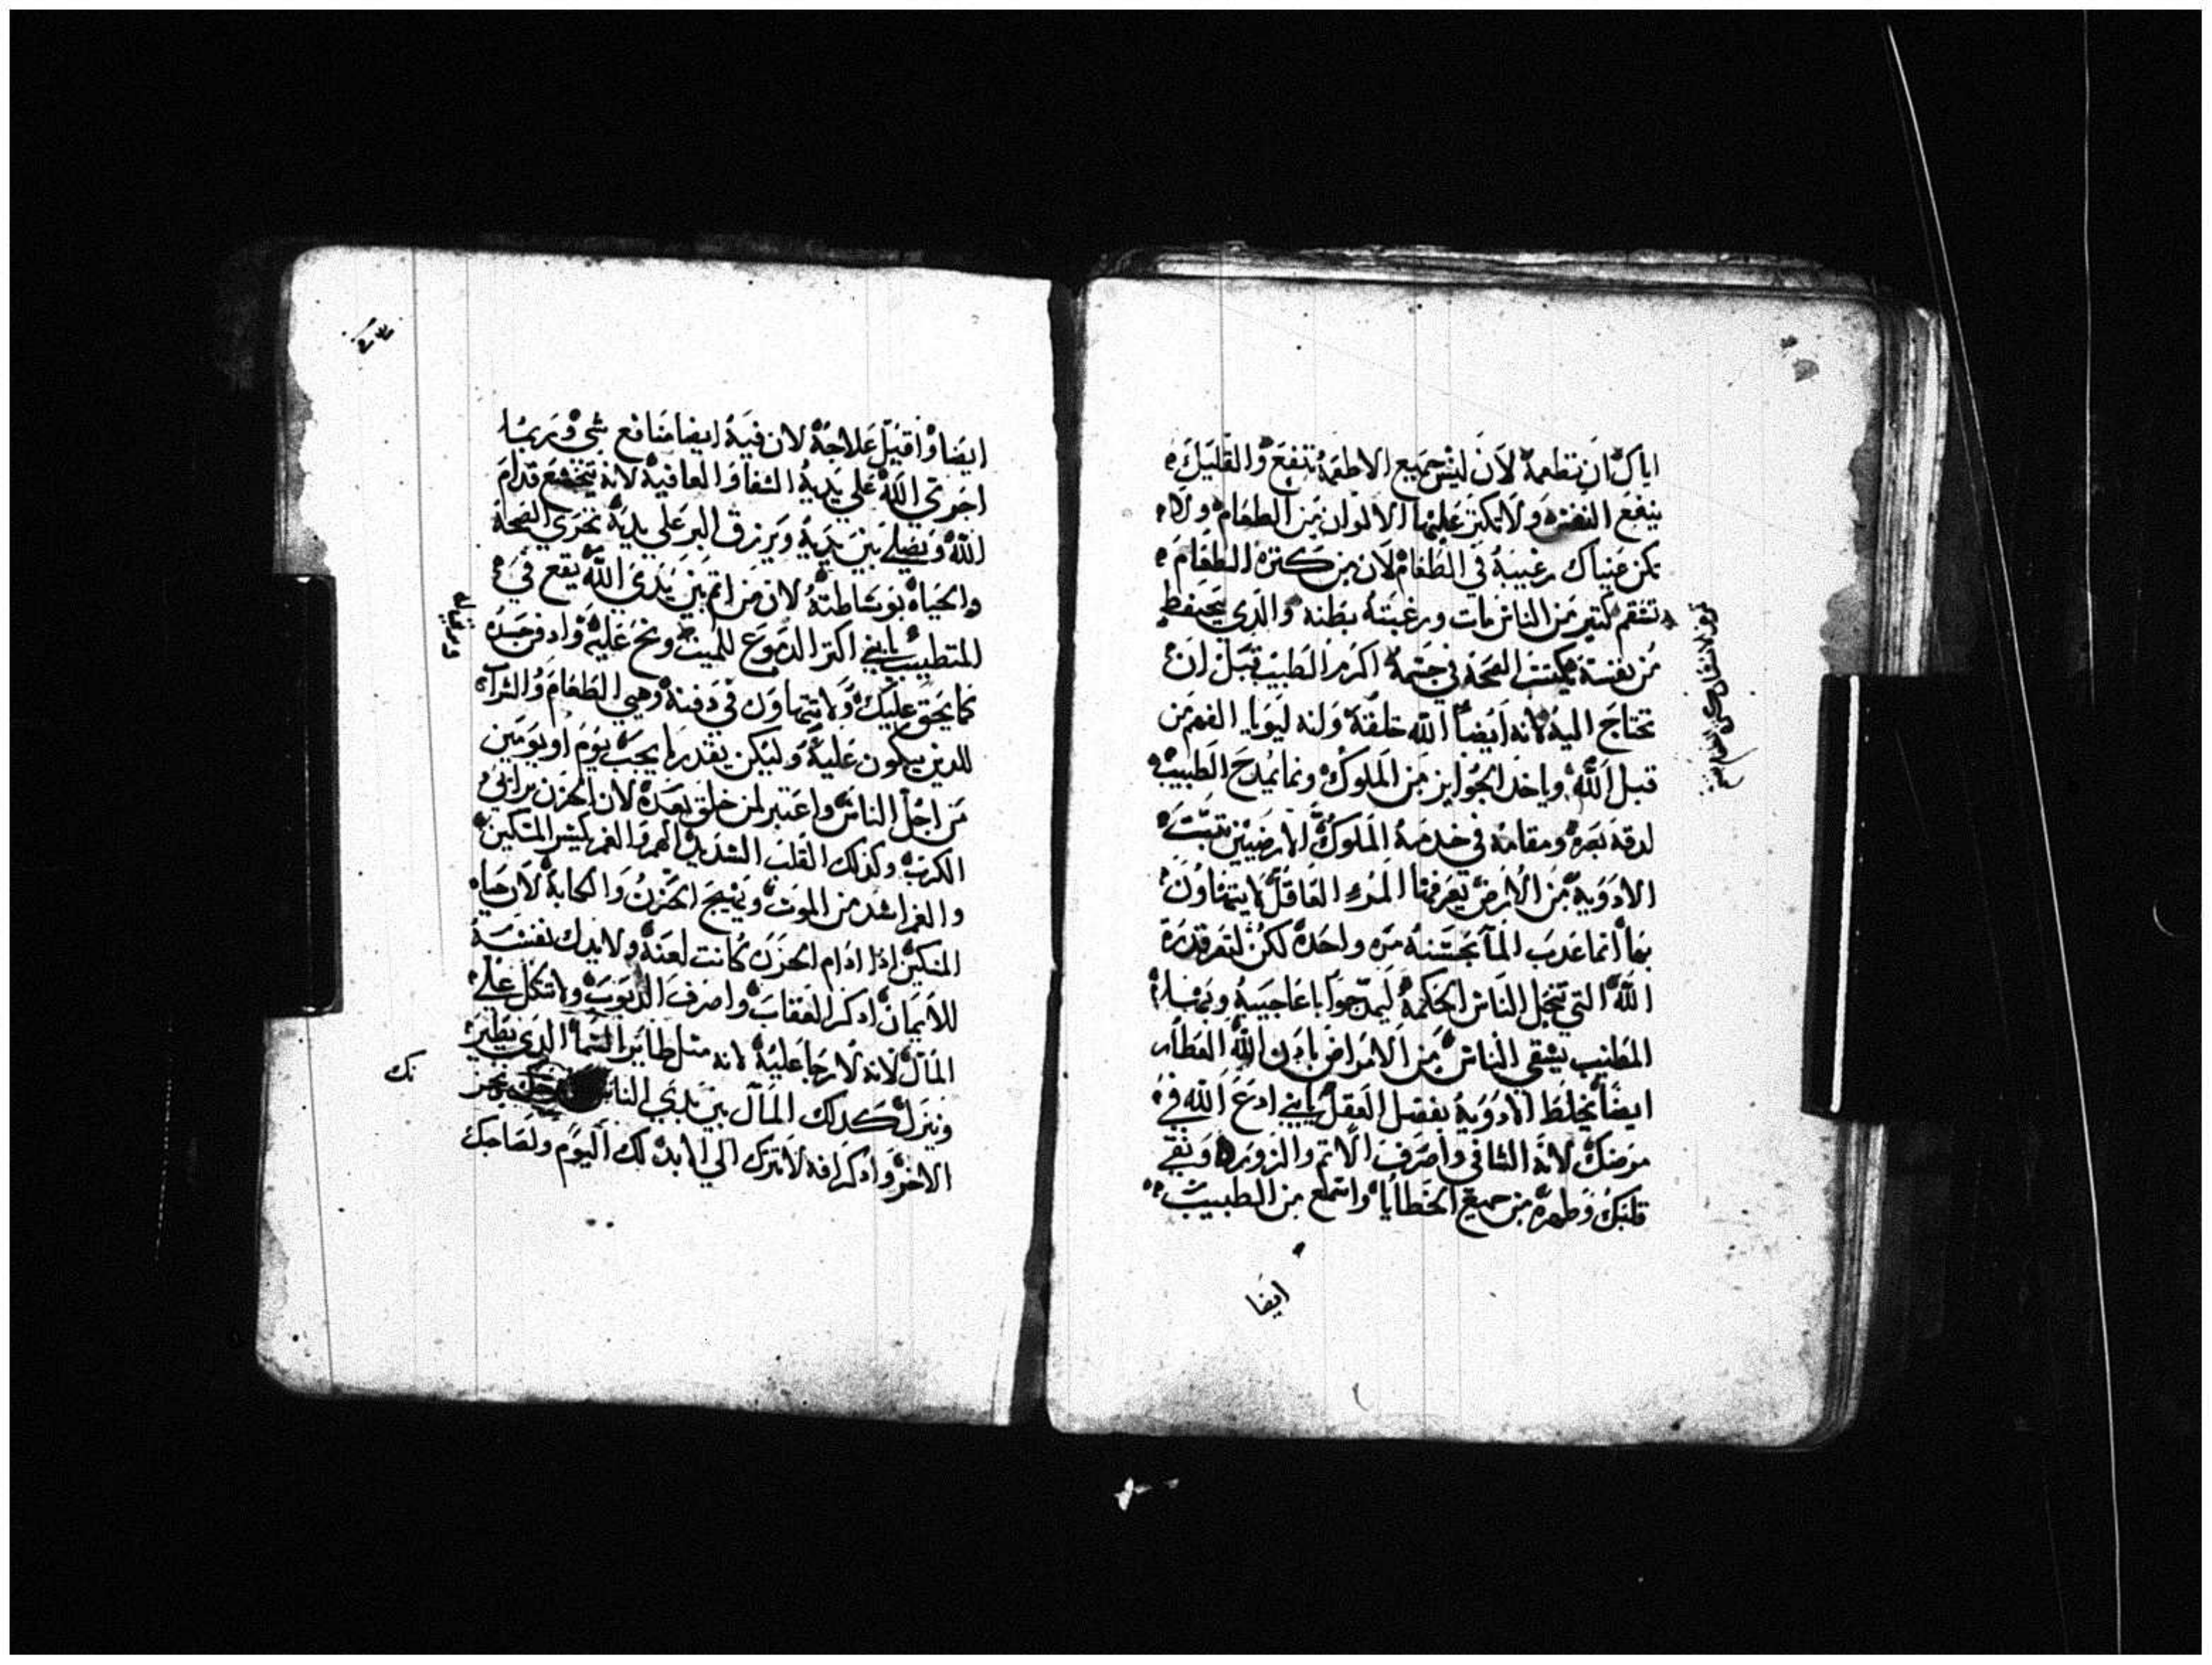 اياك ان تطعمه لان ليس جميع الاطعمة تنفع والقليل
ينفع النفس ولا تكتر عليها الالوان من الطعام ولا
تكن عيناك رغيبة في الطعام لان من كترة الطعام
تسقم كتير من الناس مات ورغبته بطنه والدي يحفظ
من نفسه يمكتت الصحة في جسمه اكرم الطبيب قبل ان
تحتاج اليه لانه ايضا الله خلقه وله ليويا الفهم من
قبل الله وياخد الجوايز من الملوك ونما يمدح الطبيب
لدقة بصره ومقامه في خدمة الملوك الارضيين تتبت
الادوية من الارض يعرفها المرء العاقل لا يتهاون
بها انما عدب المآ بخشبة مره واحدة لكن لتعرف قدرة
الله التي تنحل الناس الحكمة ليمدحوا باعاجيبه وبمشا
المطبب يشفي الناس من الامراض بادن الله العطار
ايضا يخلط الادوية بفضل العقل يابني ادع الله في
مرضك لانه الشافي واصرف الاتم والزورة ونقي
قلبك وطهره من جميع الخطايا واسمع من الطبيب
ايضا
ايضا واقبل علاجه لان فيه ايضا منافع شي وربما
اجري الله علي يديه الشفا والعافية لانه يتخشع قدام
الله ويصلي بين يديه ويرزق البر علي يديه تجري الصحة
والحياة بوساطته لان من اتم بين يدي الله يقع في
المتطبب يابني اكتر الدموع للميت ونح عليه وادفن جسده
كما يحق عليك ولا تتهاون في دفنه وهيي الطعام والشراب
للدين يبكون عليه وليكن بقدر ما يجب يوم او يومين
من اجل الناس واعتبر لمن خلق بعده لان الحزن يراني
الكربه وكدلك القلب الشديد الهم والغم يكسر المسكين
والغم اشد من الموت ويهيج الحزن والكابة لان حياه
المسكين ادا ادام الحزن كانت لعنة ولا يدك نفسه
للايمان ادكر العقاب واصرف الديوب ولا تتكل علي
المال لانه لا رجا عليه لانه متل طاير السما الدي يطير
وينزل كدلك المال بين يدي الناس
الاخر وادكر افه لا تترك الي الابد لك اليوم ولصاحبك